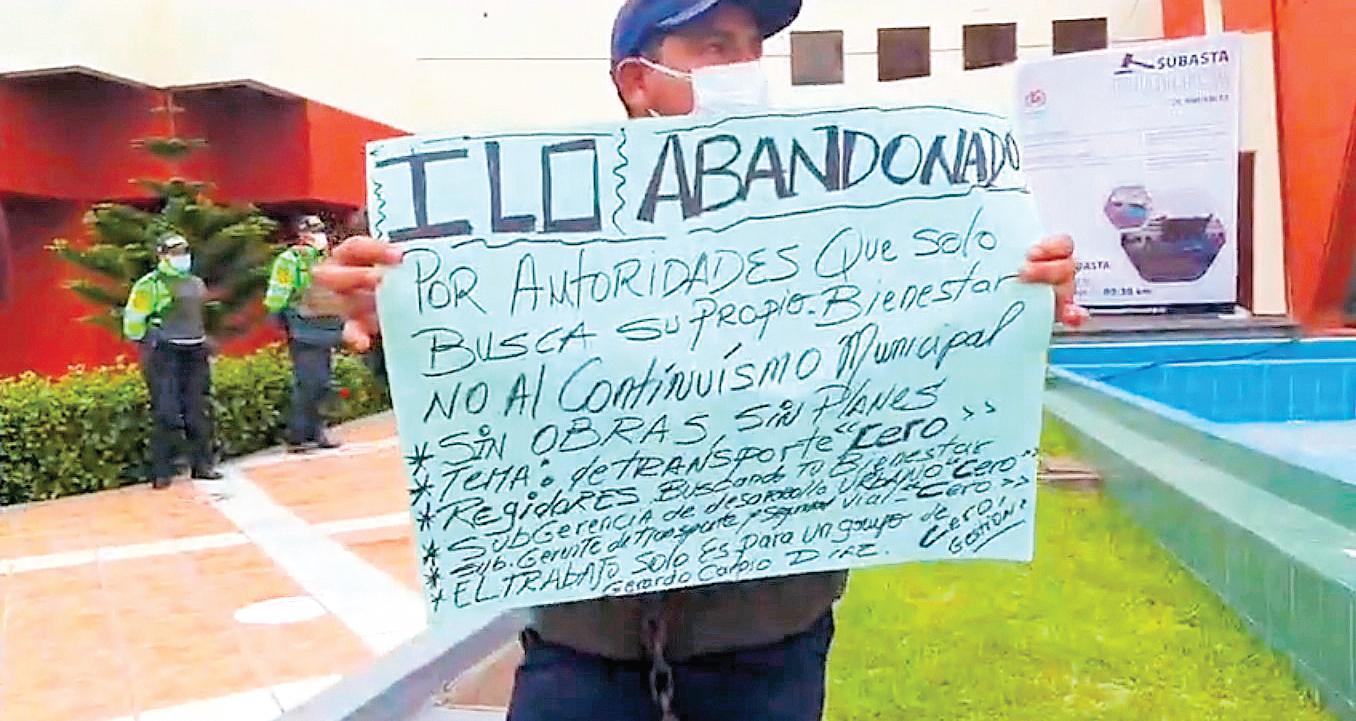 ILO ABANDONADO
POR AUTORIDADES Que solo
BUSCA su PROPIO-Bienestar
NO Al Continuísmo Municipal
* SIN OBRAS, SIN PLANES
* TEMA: de TRANSPORTE "cero"
* Regidores. Buscando tu Bienestar
* SubGerencia de desarrollo URBANO "Cero"
* Sub. Gerente de transporte y seguridad vial = "Cero"
* EL TRABAJO solo Es para un grupo de
Cero!
Gestión
Gerardo Carpio DIAZ.
SUBASTA
DE INMUEBLES
SUBASTA